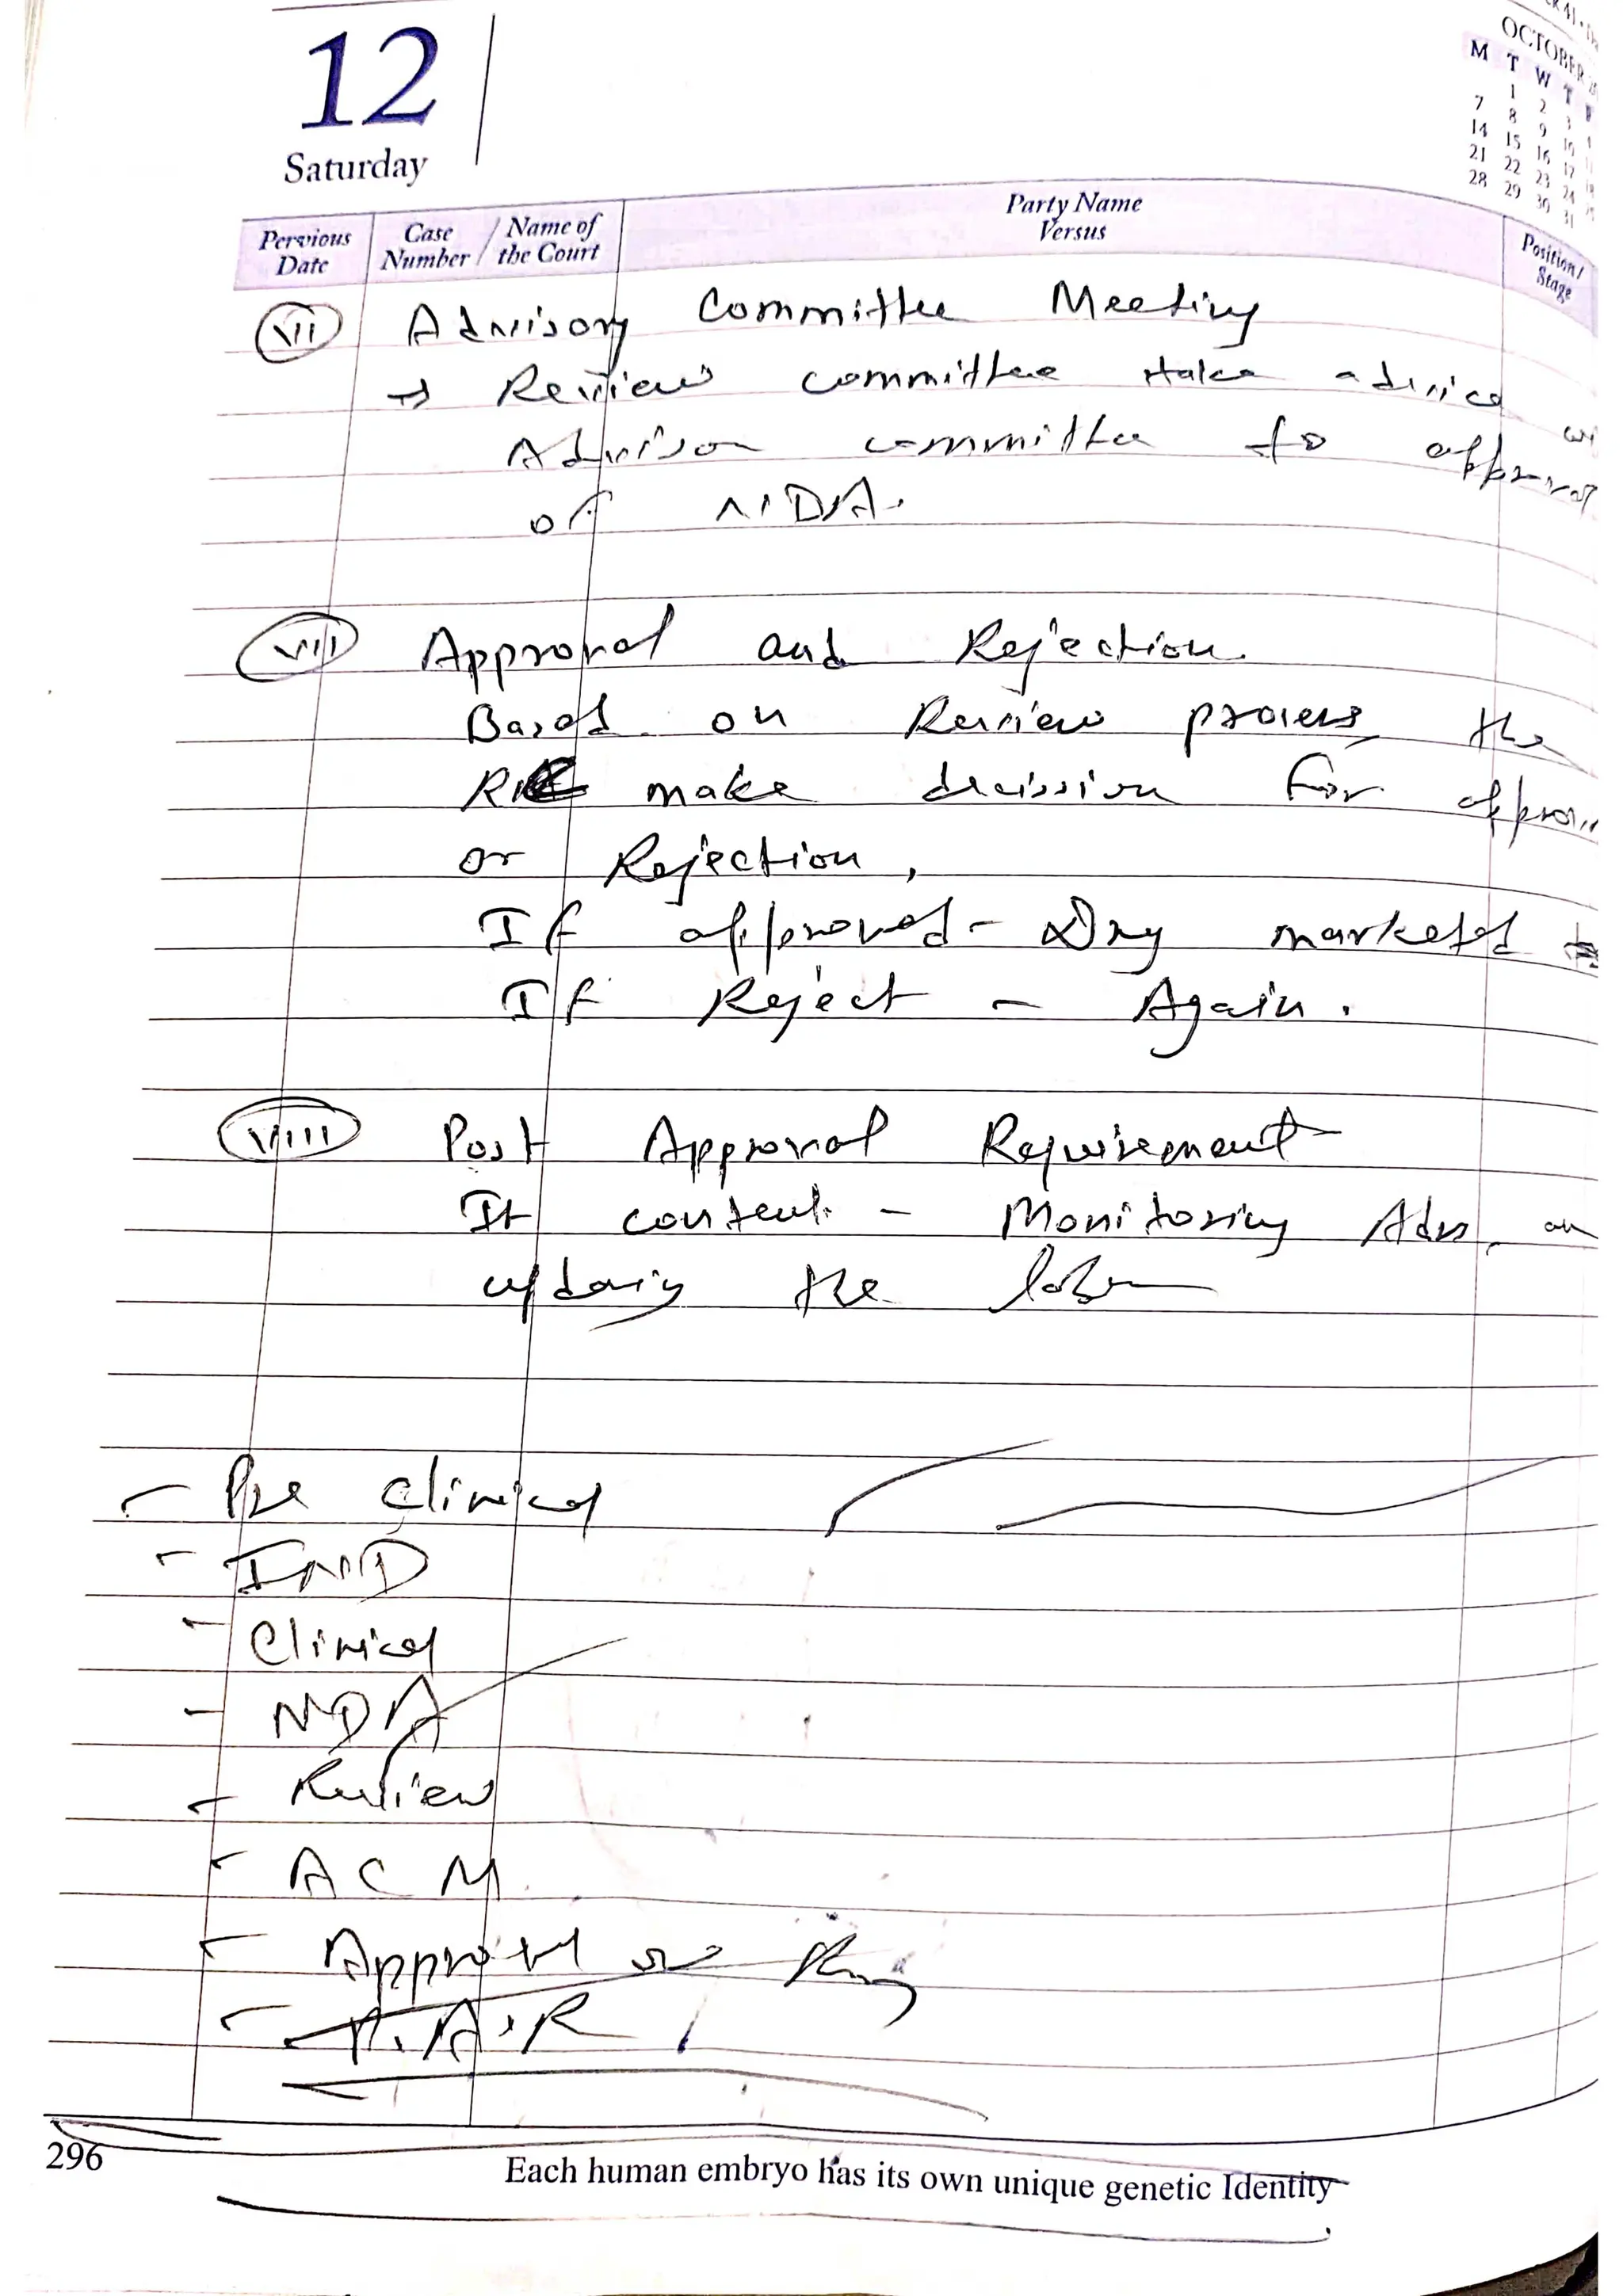 12
Saturday
OCTOBER
M T W T F
1 2 3 4
7 8 9 10 11
14 15 16 17 18
21 22 23 24 25
28 29 30 31
Pervious Date
Case Number / Name of the Court
Party Name Versus
Position / Stage
VII Advisory Committee Meeting
→ Review committee take advice
Advison committee to approval
of NDA.
VII Approval and Rejection.
Based on Review process, the
make decission for
or Rejection,
If approved - Drug marketed
If Reject - Again.
VIII Post Approval Requirement
It content - Monitoring Adrs,
the
- Pre Clinical
- IND
- Clinical
- NDA
- Review
- A C M
- Approval or
- P.A.R
296
Each human embryo has its own unique genetic Identity